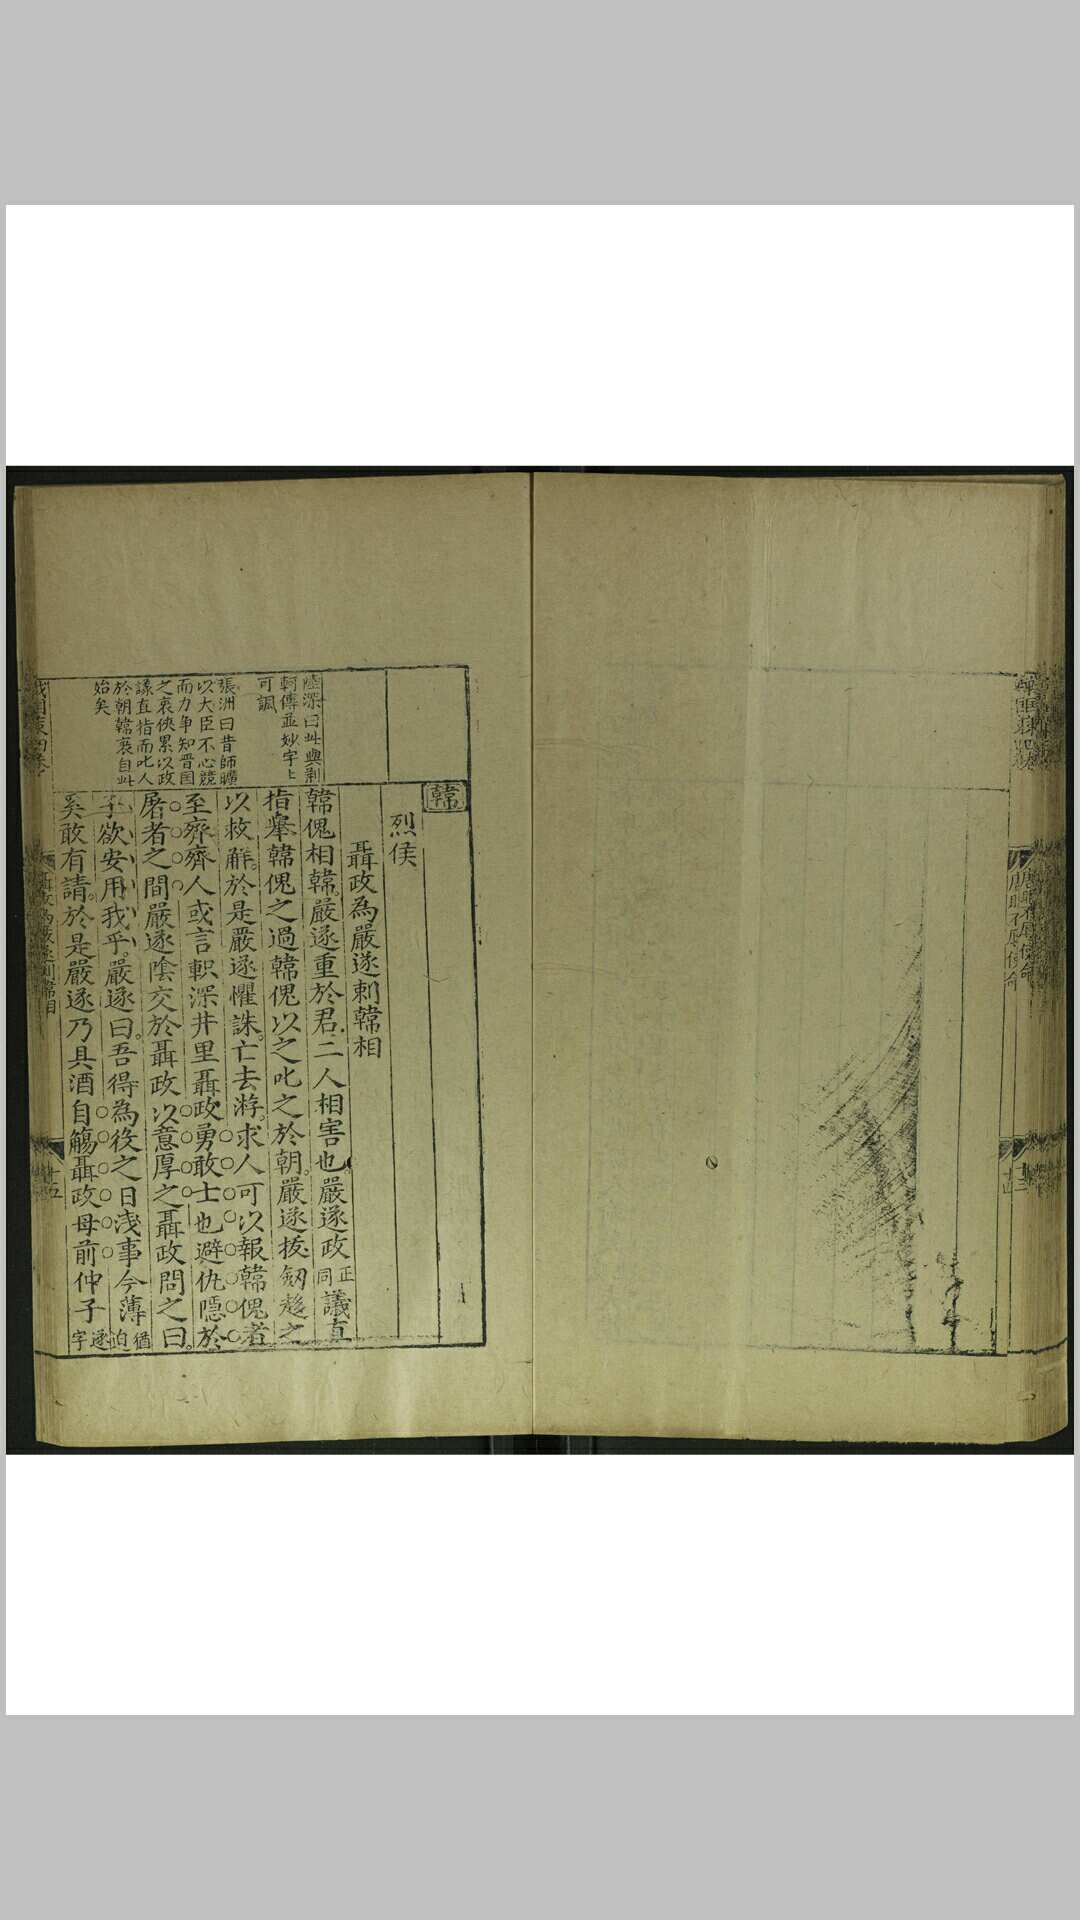 韓
烈侯
聶政為嚴遂刺韓相
韓傀相韓嚴遂重於君二人相害也嚴遂政正同議直
指舉韓傀之過韓傀以之叱之於朝嚴遂拔劒趍之
以救解於是嚴遂懼誅亡去游求人可以報韓傀者
至齊齊人或言軹深井里聶政勇敢士也避仇隱於
屠者之間嚴遂陰交於聶政以意厚之聶政問之曰
子欲安用我乎嚴遂曰吾得為役之日淺事今薄猶迫
奚敢有請於是嚴遂乃具酒自觴聶政母前仲子遂字
陸深曰此與刺
軻傳並妙字上
可諷
張洲曰昔師曠
以大臣不心競
而力争知晉國
之衰俠累以政
議直指而叱人
於朝韓衰自此
始矣
聶政為嚴遂刺韓相
十五